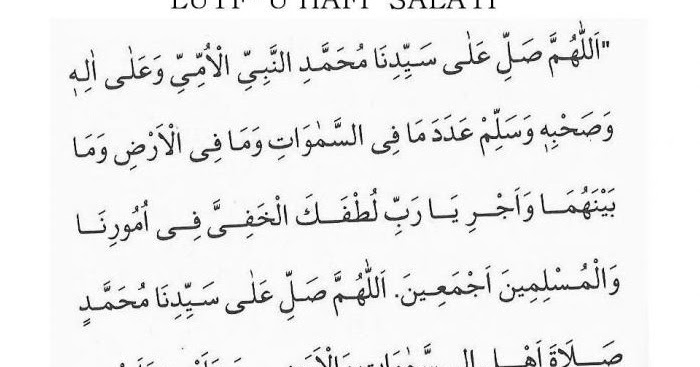 LÜTF-Ü HAFİ SALATI
"اَللّٰهُمَّ صَلِّ عَلٰى سَيِّدِنَا مُحَمَّدِ النَّبِيِّ الْاُمِّيِّ وَعَلٰى اٰلِهٖ
وَصَحْبِهٖ وَسَلِّمْ عَدَدَ مَا فِى السَّمٰوَاتِ وَمَا فِى الْاَرْضِ وَمَا
بَيْنَهُمَا وَاَجْرِ يَا رَبِّ لُطْفَكَ الْخَفِىَّ فِى اُمُورِنَا
وَالْمُسْلِمِينَ اَجْمَعِينَ. اَللّٰهُمَّ صَلِّ عَلٰى سَيِّدِنَا مُحَمَّدٍ
صَلَاةَ اَهْلِ السَّمٰوَاتِ وَالْاَرَضِينَ